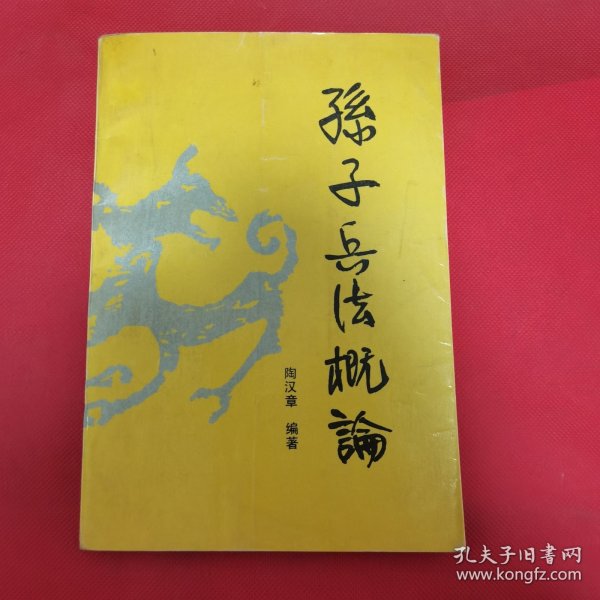 孫子兵法概論
陶汉章 编著
孔夫子旧书网
www.kongfz.com